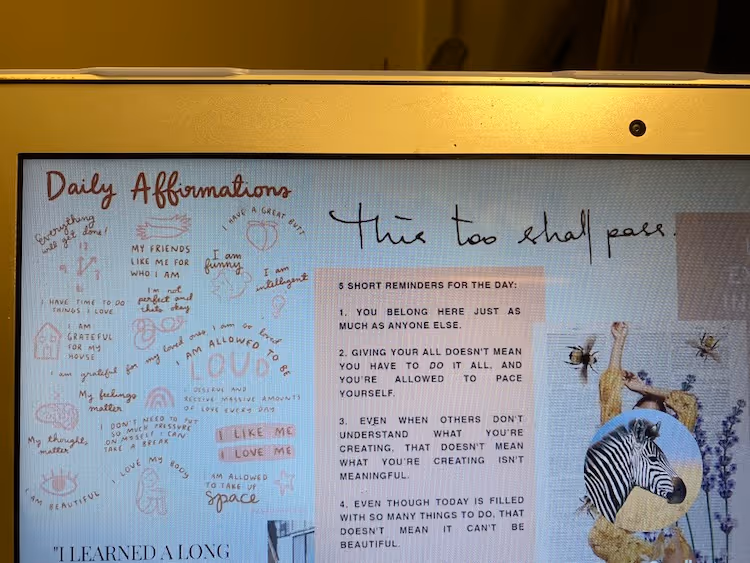 Daily Affirmations
Everything
will get done!
MY FRIENDS
LIKE ME FOR
WHO I AM
I HAVE A GREAT BUTT
I am
funny
I am
intelligent
I HAVE TIME TO DO
THINGS I LOVE
I'm not
perfect and
thats okay
I AM
GRATEFUL
FOR MY
HOUSE
I am grateful for my loved ones, I am so loved
I AM ALLOWED TO BE
LOUD
My feelings
matter
I DESERVE AND
RECEIVE MASSIVE AMOUNTS
OF LOVE EVERY DAY
My thoughts
matter
I DON'T NEED TO PUT
SO MUCH PRESSURE
ON MYSELF I CAN
TAKE A BREAK
I LIKE ME
I LOVE ME
I AM BEAUTIFUL
I LOVE MY BODY
I AM ALLOWED
TO TAKE UP
Space
"I LEARNED A LONG
This too shall pass.
5 SHORT REMINDERS FOR THE DAY:
1. YOU BELONG HERE JUST AS
MUCH AS ANYONE ELSE.
2. GIVING YOUR ALL DOESN'T MEAN
YOU HAVE TO DO IT ALL, AND
YOU'RE ALLOWED TO PACE
YOURSELF.
3. EVEN WHEN OTHERS DON'T
UNDERSTAND WHAT YOU'RE
CREATING, THAT DOESN'T MEAN
WHAT YOU'RE CREATING ISN'T
MEANINGFUL.
4. EVEN THOUGH TODAY IS FILLED
WITH SO MANY THINGS TO DO, THAT
DOESN'T MEAN IT CAN'T BE
BEAUTIFUL.